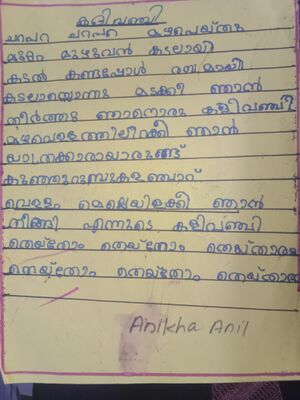 കളിവഞ്ചി
ചറപറ ചറപറ മഴപെയ്തു
മുറ്റം മുഴുവൻ കടലായി
കടൽ കണ്ടപ്പോൾ രസമായീ
കടലാസ്സൊന്നു മടക്കീ ഞാൻ
തീർത്തു ഞാനൊരു കളിവഞ്ചി
മഴവെള്ളത്തിലിറക്കി ഞാൻ
യാത്രക്കാരായാരുണ്ട്
കുഞ്ഞുറുമ്പുകളഞ്ചാറ്
വെള്ളം മെല്ലെയിളക്കി ഞാൻ
നീങ്ങി എന്നുടെ കളിവഞ്ചി
തെയ്തോം തെയ്തോം തെയ്താരാ
തെയ്തോം തെയ്തോം തെയ്താരാ
Anikha Anil